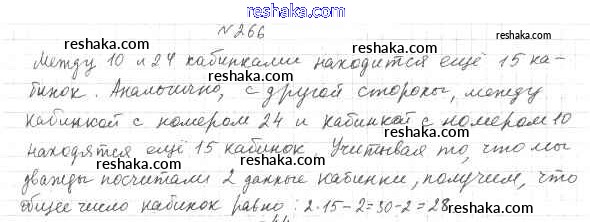 reshaka.com
№266
reshaka.com reshaka.com
Между 10 и 24 кабинками находится ещё 15 ка-
бинок. Аналогично, с другой стороны, между
reshaka.com reshaka.com
кабинкой с номером 24 и кабинкой с номером 10
reshaka.com reshaka.com
находятся ещё 15 кабинок Учитывая то, что мы
reshaka.com reshaka.com
дважды посчитали 2 данные кабинки, получим, что
общее число кабинок равно: 2·15-2=30-2=28
reshaka.com